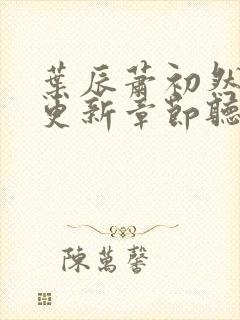 葉辰蕭初然
更新章節聽
陳萬馨